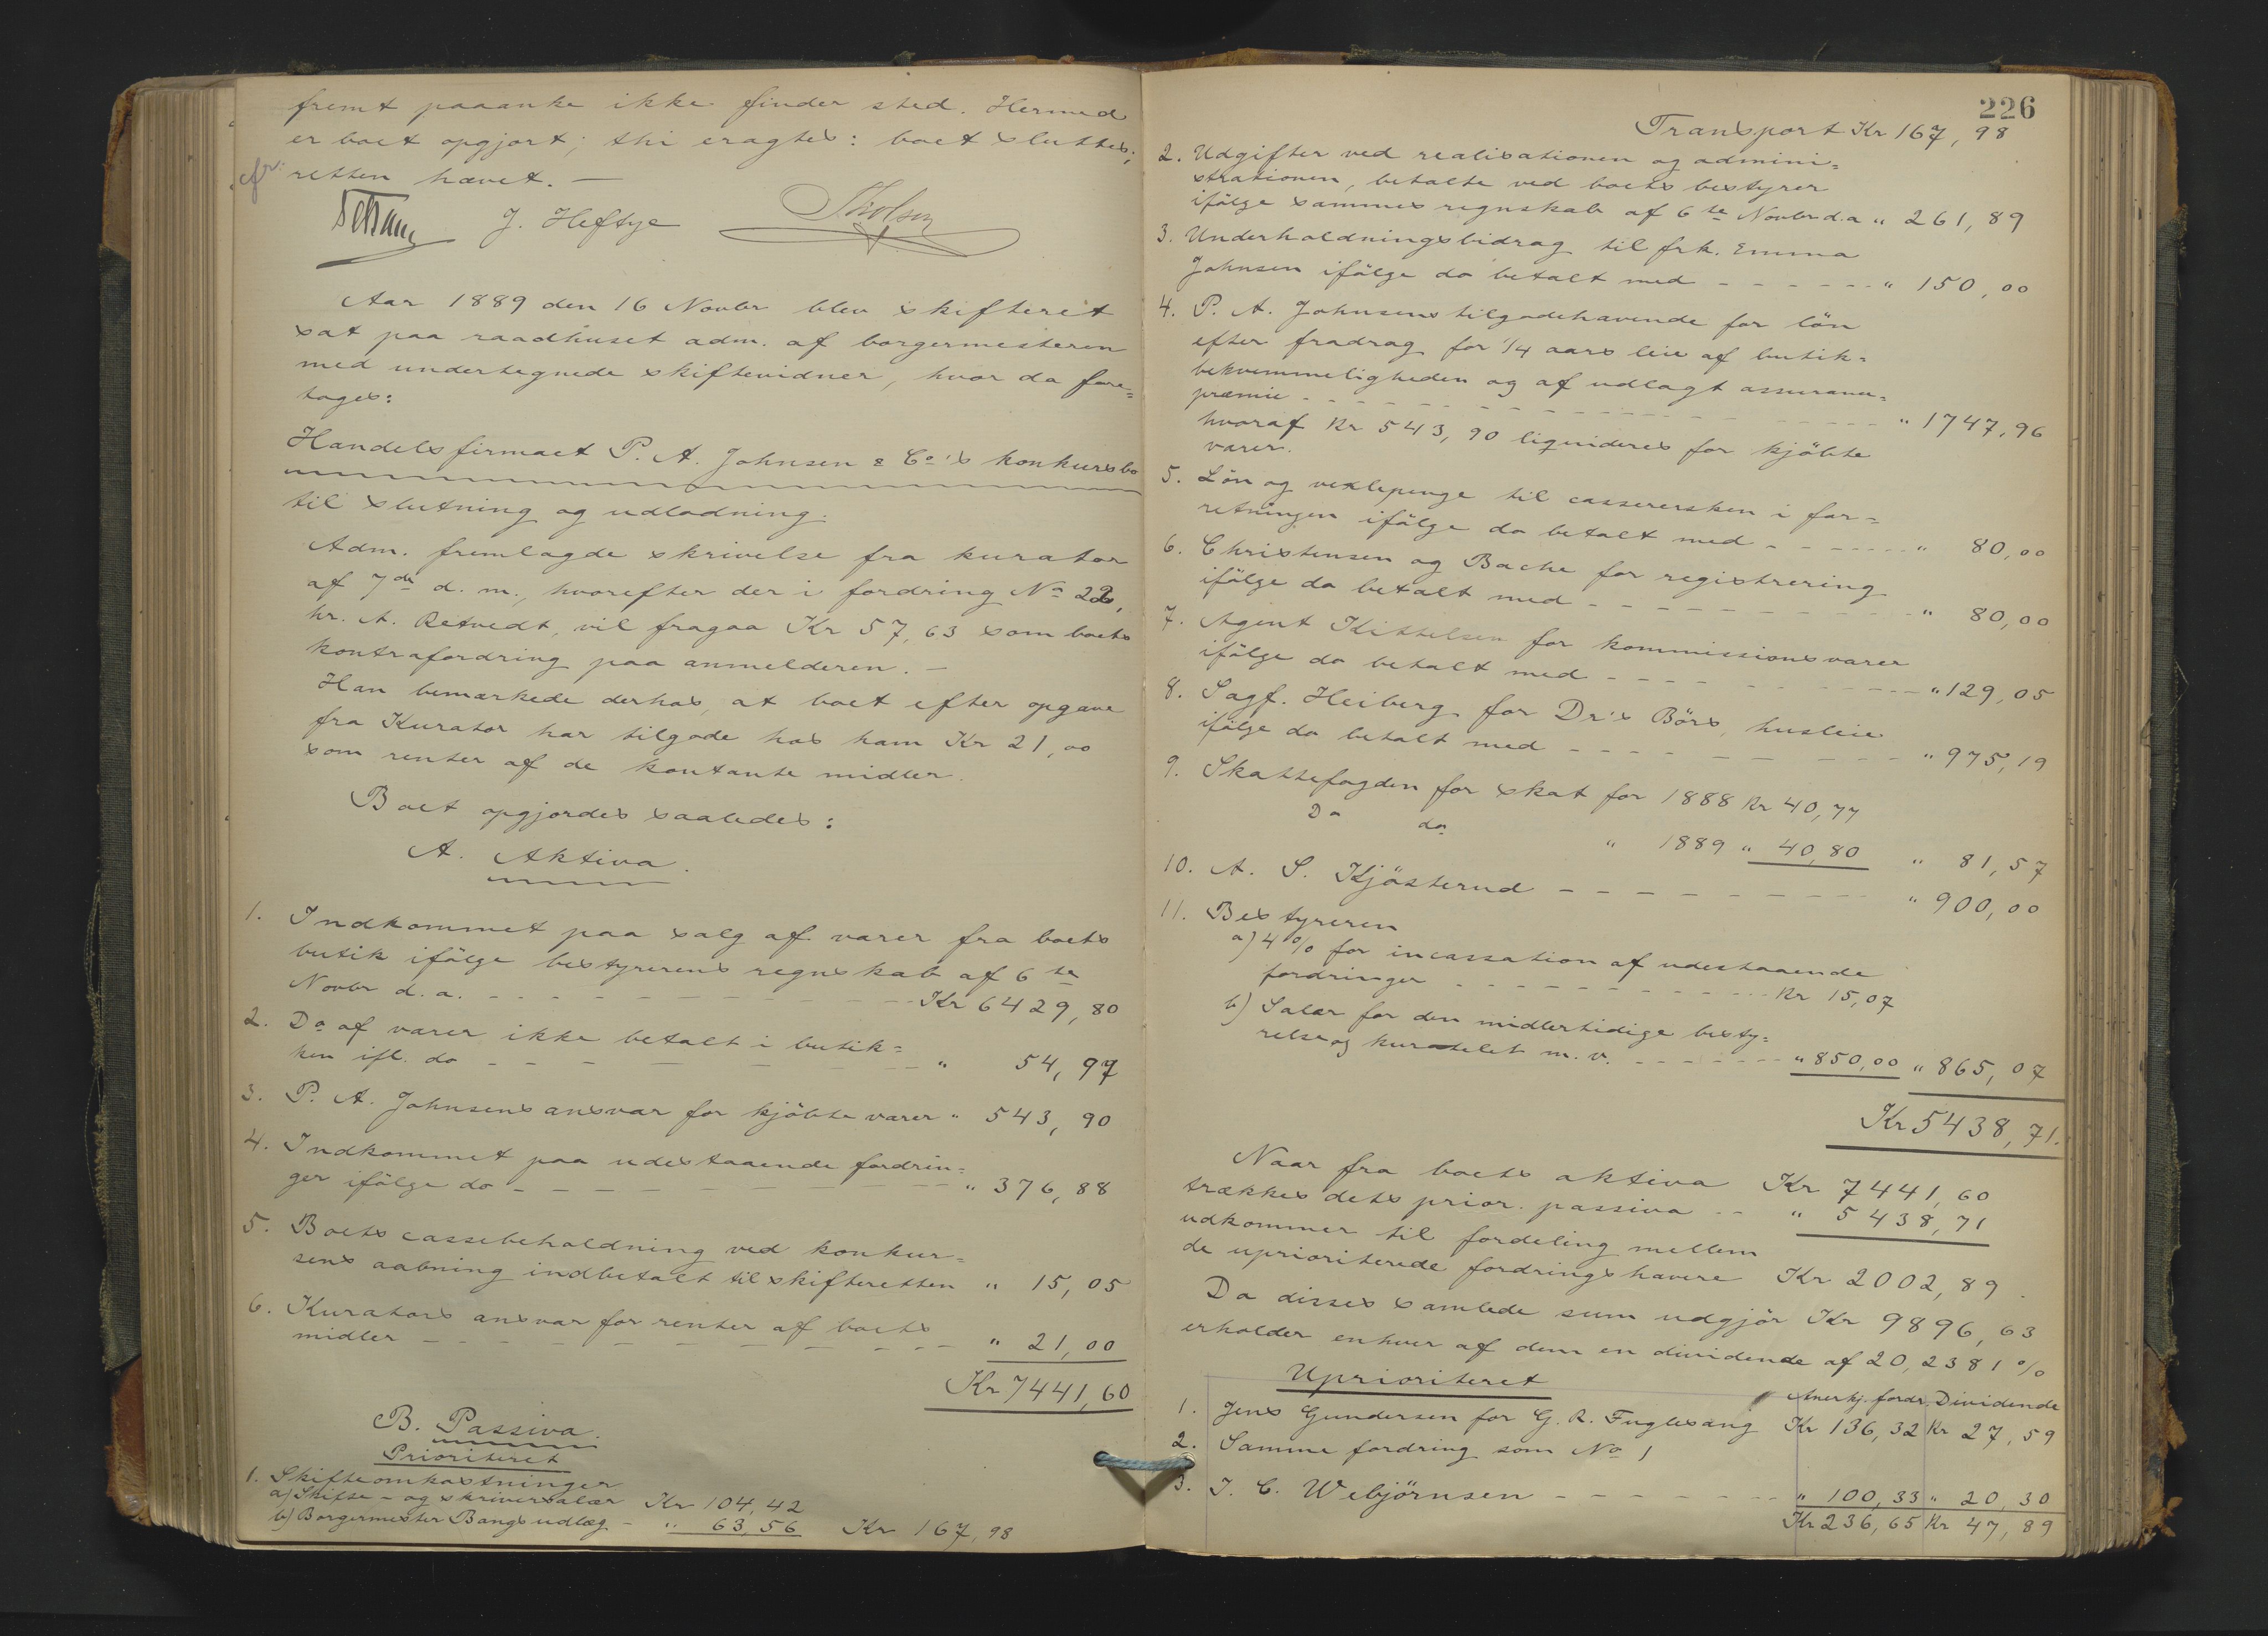 fremt paaanke ikke finder sted. Hermed
er boet opgjort; thi eragtes: boet sluttes;
cfr: retten hævet. —
J. Heftye
Aar 1889 den 16 Novbr blev skifteret
sat paa raadhuset adm. af borgermesteren
med undertegnede skiftevidner, hvor da fore=
toges:
Handelsfirmaet P. A. Johnsen & Co's konkursbo
til slutning og udlodning.
Adm. fremlagde skrivelse fra kurator
af 7de d. m., hvorefter der i fordring No 22,
hr. A. Retvedt, vil fragaa Kr 57,63 som boets
kontrafordring paa anmelderen. —
Han bemærkede derhos, at boet efter opgave
fra Kurator har tilgode hos ham Kr 21,00
som renter af de kontante midler.
Boet opgjordes saaledes:
A. Aktiva.
1. Indkommet paa salg af varer fra boets
butik ifölge bestyrerens regnskab af 6te
Novbr d. a. - - - Kr 6429,80
2. Do af varer ikke betalt i butik=
ken ifl. do - - - " 54,97
3. P. A. Johnsens ansvar for kjöbte varer " 543,90
4. Indkommet paa udestaaende fordrin=
ger ifölge do - - - " 376,88
5. Boets cassebeholdning ved konkur=
sens aabning indbetalt til skifteretten " 15,05
6. Kurators ansvar for renter af boets
midler - - - " 21,00
Kr 7441,60
B. Passiva.
Prioriteret
1. Skifteomkostninger
a) Skifte- og skriversalær Kr 104,42
b) Borgermester Bangs udlæg - " 63,56 Kr 167,98
226
Transport Kr 167,98
2. Udgifter ved realisationen og admini=
strationen, betalte ved boets bestyrer
ifölge sammes regnskab af 6te Novbr d.a " 261,89
3. Underholdningsbidrag til frk. Emma
Johnsen ifölge do betalt med - - - " 150,00
4. P. A. Johnsens tilgodehavende for lön
efter fradrag for 1/4 aars leie af butik=
bekvemmeligheden og af udlagt assurance=
præmie - - - " 1747,96
hvoraf Kr 543,90 liquideres for kjöbte
varer.
5. Lön og vexlepenge til cassserersken i for=
retningen ifölge do betalt med - - - " 80,00
6. Christensen og Bache for registrering
ifölge do betalt med - - - " 80,00
7. Agent Kittelsen for kommissionsvarer
ifölge do betalt med - - - " 129,05
8. Sagf. Heiberg for Dr's Börs, husleie
ifölge do betalt med - - - " 975,19
9. Skattefogden for skat for 1888 Kr 40,77
Do do " 1889 " 40,80 " 81,57
10. A. S. Kjösterud - - - " 900,00
11. Bestyreren
a) 4 % for incassation af udestaaende
fordringer - - - Kr 15,07
b) Salær for den midlertidige besty=
relse og kuratelet m. v. - - - " 850,00 " 865,07
Kr 5438,71.
Naar fra boets aktiva Kr 7441,60
trækkes dets prior. passiva -- " 5438,71
udkommer til fordeling mellem
de uprioriterede fordringshavere Kr 2002,89.
Da disses samlede sum udgjör Kr 9896,63
erholder enhver af dem en dividende af 20,2381 %
Uprioriteret
Anerkj. fordr. Dividende
1. Jens Gundersen for G. R. Fuglesang Kr 136,32 Kr 27,59
2. Samme fordring som No 1
3. J. C. Webjörnsen - - - " 100,33 " 20,30
Kr 236,65 Kr 47,89